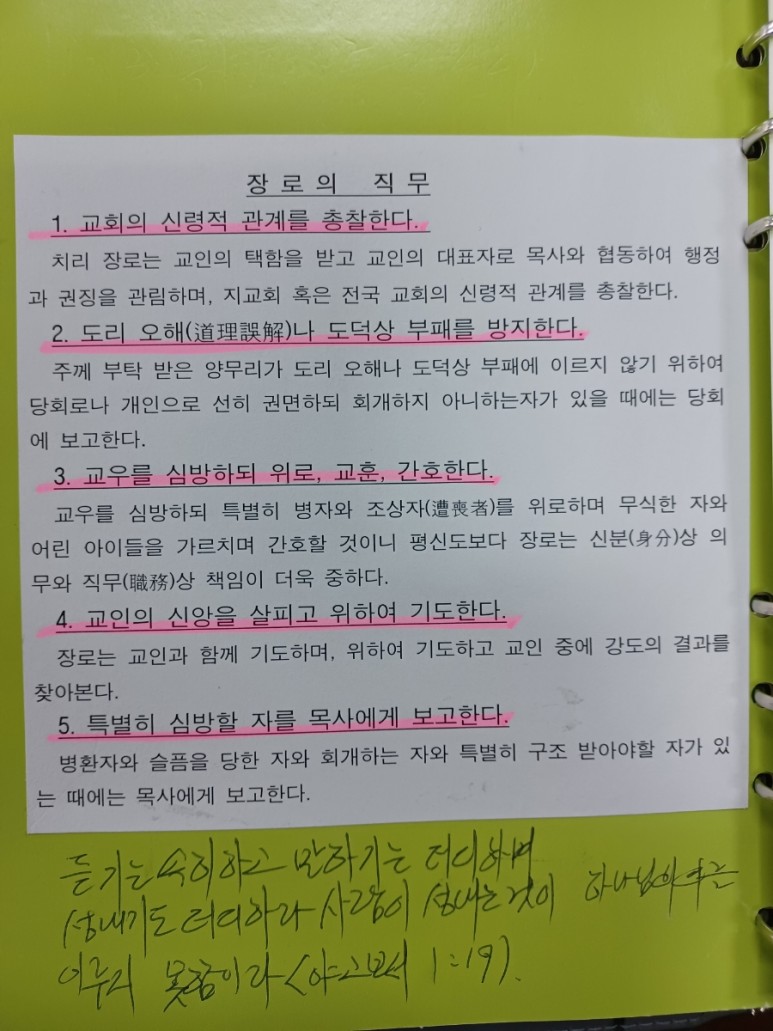 장로의 직무
1. 교회의 신령적 관계를 총찰한다.
치리 장로는 교인의 택함을 받고 교인의 대표자로 목사와 협동하여 행정
과 권징을 관림하며, 지교회 혹은 전국 교회의 신령적 관계를 총찰한다.
2. 도리 오해(道理誤解)나 도덕상 부패를 방지한다.
주께 부탁 받은 양무리가 도리 오해나 도덕상 부패에 이르지 않기 위하여
당회로나 개인으로 선히 권면하되 회개하지 아니하는자가 있을 때에는 당회
에 보고한다.
3. 교우를 심방하되 위로, 교훈, 간호한다.
교우를 심방하되 특별히 병자와 조상자(遭喪者)를 위로하며 무식한 자와
어린 아이들을 가르치며 간호할 것이니 평신도보다 장로는 신분(身分)상 의
무와 직무(職務)상 책임이 더욱 중하다.
4. 교인의 신앙을 살피고 위하여 기도한다.
장로는 교인과 함께 기도하며, 위하여 기도하고 교인 중에 강도의 결과를
찾아본다.
5. 특별히 심방할 자를 목사에게 보고한다.
병환자와 슬픔을 당한 자와 회개하는 자와 특별히 구조 받아야할 자가 있
는 때에는 목사에게 보고한다.
듣기는 속히하고 말하기는 더디하며
성내기도 더디하라 사람이 성내는것이 하나님의
이루지 못함이라 <야고보서 1:19).